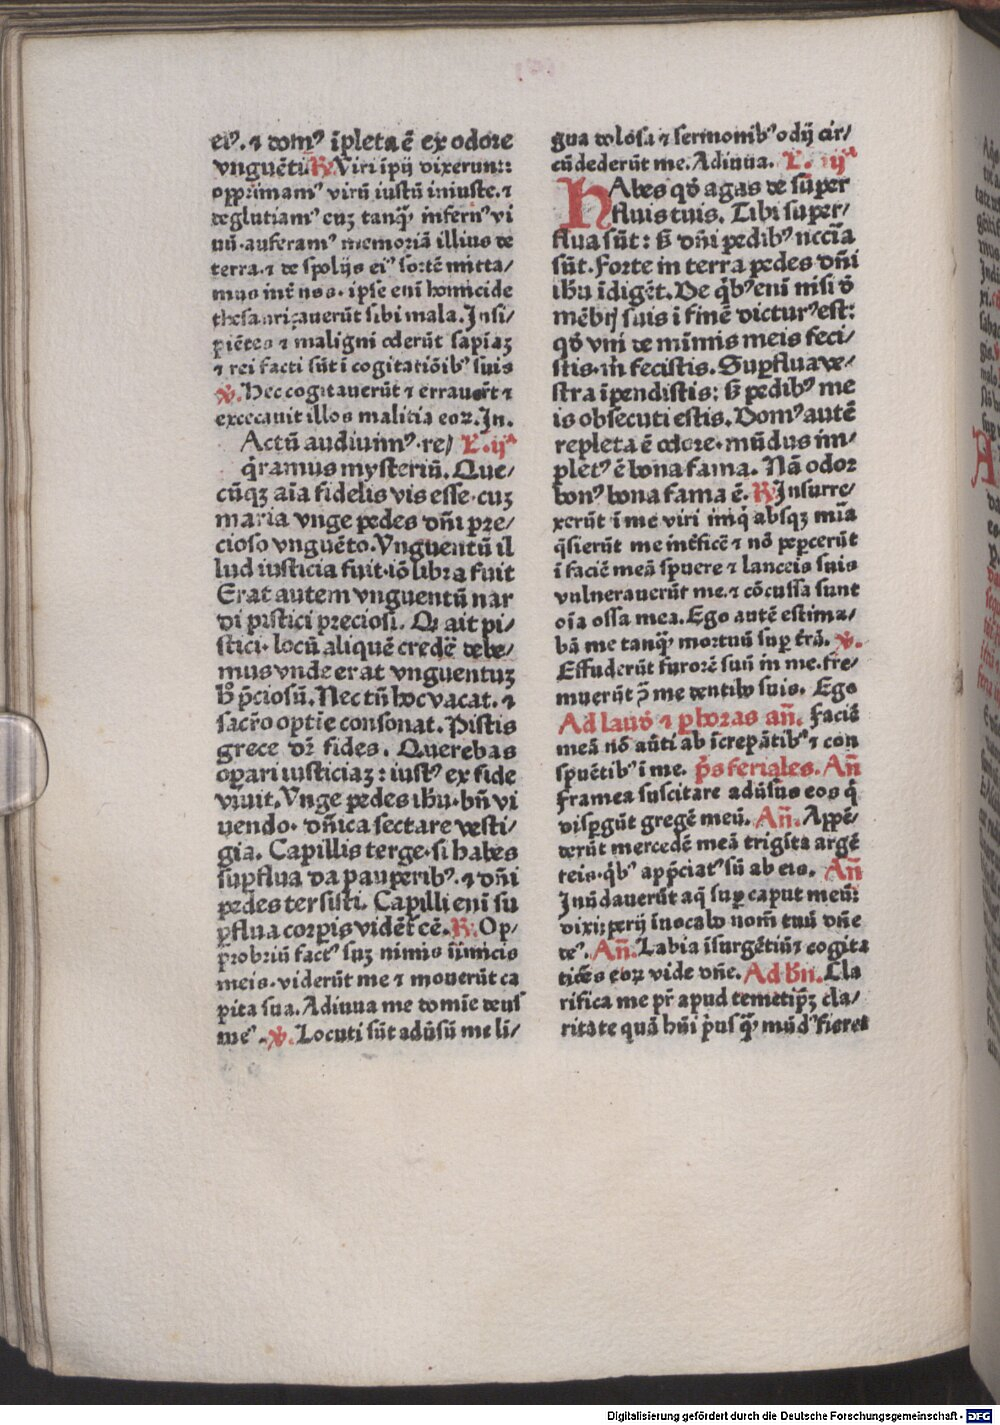 eiꝰ. ⁊ domꝰ īpleta ē ex odore
vnguētiꝶViri īpij dixerunt:
opprimamꝰ virū iustū iniuste.⁊
deglutiamꝰ euꝫ tanꝙ̄ infernꝰ vi
uū.auferamꝰ memoriā illius de
terra.⁊ de spolijs eiꝰ sortē mitta/
mus int̄ nos. ipse eni homicide
thesaurizauerūt sibi mala.Insi/
piētes ⁊ maligni oderūt sapiaꝫ
⁊ rei facti sūt i cogitatiōibꝰ suis
℣.Hec cogitauerūt ⁊ erraueꝛt̄ ⁊
excecauit illos malitia eoꝝ.In.
Actū audiuimꝰ.re) L.ijᵃ
q̄ramus mysteriū. Que/
cūqꝫ aīa fidelis vis esse.cuꝫ
maria vnge pedes dn̄i pre/
cioso vnguēto.Vnguentū il
lud iusticia fuit.iō libra fuit
Erat autem vnguentū nar
di pistici preciosi. Qꝫ ait pi/
stici. locū aliquē credē debe/
mus vnde erat vnguentuꝫ
h̊ p̄ciosū. Nec tn̄ hoc vacat.⁊
sacr̄o optīe consonat. Pistis
grece dꝛ̄ fides. Querebas
opari iusticiaꝫ: iustꝰ ex fide
viuit.Vnge pedes ihu.bn̄ vi
uendo. dn̄ica sectare vesti/
gia. Capillis terge.si habes
suꝑflua da pauperibꝰ.⁊ dn̄i
pedes tersisti. Capilli eni su
ꝑflua corpis vidēt̄ cē.ꝶ.Op/
probriū factꝰ suꝫ nimis iīmicis
meis.viderūt me ⁊ mouerūt ca
pita sua.Adiuua me domīe deus
meꝰ.℣.Locuti sūt aduͤsū me li/
gua dolosa ⁊ sermonibꝰ odij cir/
cūdederūt me.Adiuua. L. iijᵃ
HAbes qͦ agas de suꝑer
fluis tuis. Tibi super/
flua sūt: sꝫ dn̄i pedibꝰ nccīa
sūt.Forte in terra pedes dn̄i
ihu īdigēt.De q̄bꝰ eni nisi d̄
mēbrꝭ suis i finē dicturꝰ est:
qͦ vni de minimis meis feci/
stis.m̄ fecistis.Suꝑflua ve/
stra īpendistis: sꝫ pedibꝰ me
is obsecuti estis. Domꝰ autē
repleta ē odore.mūdus im/
pletꝰ ē bona fama. Nā odor
bonꝰ bona fama ē. ꝶInsurre/
xerūt ī me viri imq̄ absqꝫ mīa
q̄sierūt me int̄ficē ⁊ nō peꝑcerūt
ī faciē meā spuere ⁊ lanceis suis
vulnerauerūt me.⁊ cōcussa sunt
oīa ossa mea. Ego autē estima/
bā me tanꝙ̄ mortuū suꝑ t̄rā. ℣.
Effuderūt furorē suū in me.fre/
muerūt ꝯ̄ me dentibꝰ suis. Ego
Ad laud̄ ⁊ ꝑ horas an̄. Faciē
meā nō au̅ti ab īcrepātibꝰ ⁊ con
spuētibꝰ ī me. p̄s feriales. An̄
Framea suscitare aduͤsus eos q̄
disꝑgūt gregē meū. An̄.Appē/
derūt mercedē meā trigīta argē
teis.q̄bꝰ app̄ciatꝰ sū ab eis. An̄
Inūdauerūt aq̄ suꝑ caput meū:
dixi;perij īuocabo nom̄ tuū dn̄e
deꝰ. An̄.Labia īsurgētiū⁊ cogita
tiōes eoꝝ vide dn̄e. Ad bn̄. Cla
rifica me pr̄ apud temetip̄ꝫ cla/
ritate quā hūi p̄usꝙ̄ mūdꝰ fieret
Digitalisierung gefördert durch die Deutsche Forschungsgemeinschaft - DFG